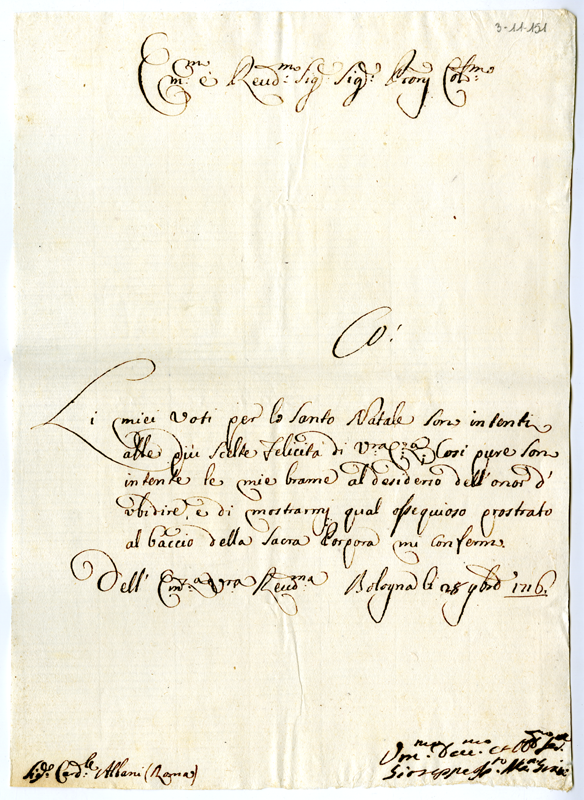 3-11-151
Em.mo e Reud.mo Sig.r Sig.r Pron Col.mo
Li miei voti per lo santo Natale son intenti
alle più scelte felicità di V.ra Em.a Così pure son
intente le mie brame al desiderio dell'onor d'
ubidire, e di mostrarmi qual ossequioso prostrato
al baccio della Sacra Porpora mi confermo.
Dell' Em.a V.ra Reud.ma Bologna li 28 9bre 1716.
Um.mo Deu.mo et Obb.mo Ser.
Sig.r Card.le Albani (Roma) Gioseppe